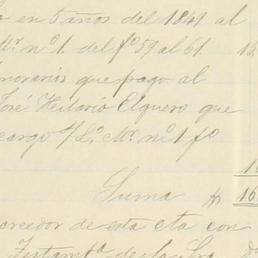 en 5 años del 1849 al
nº 1. del fº 59 al 61.
que pago al
José Hilario Elguero que
cargo
nº 1 fº
Suma
acreedor de esta cta con
Testamª de la Sra